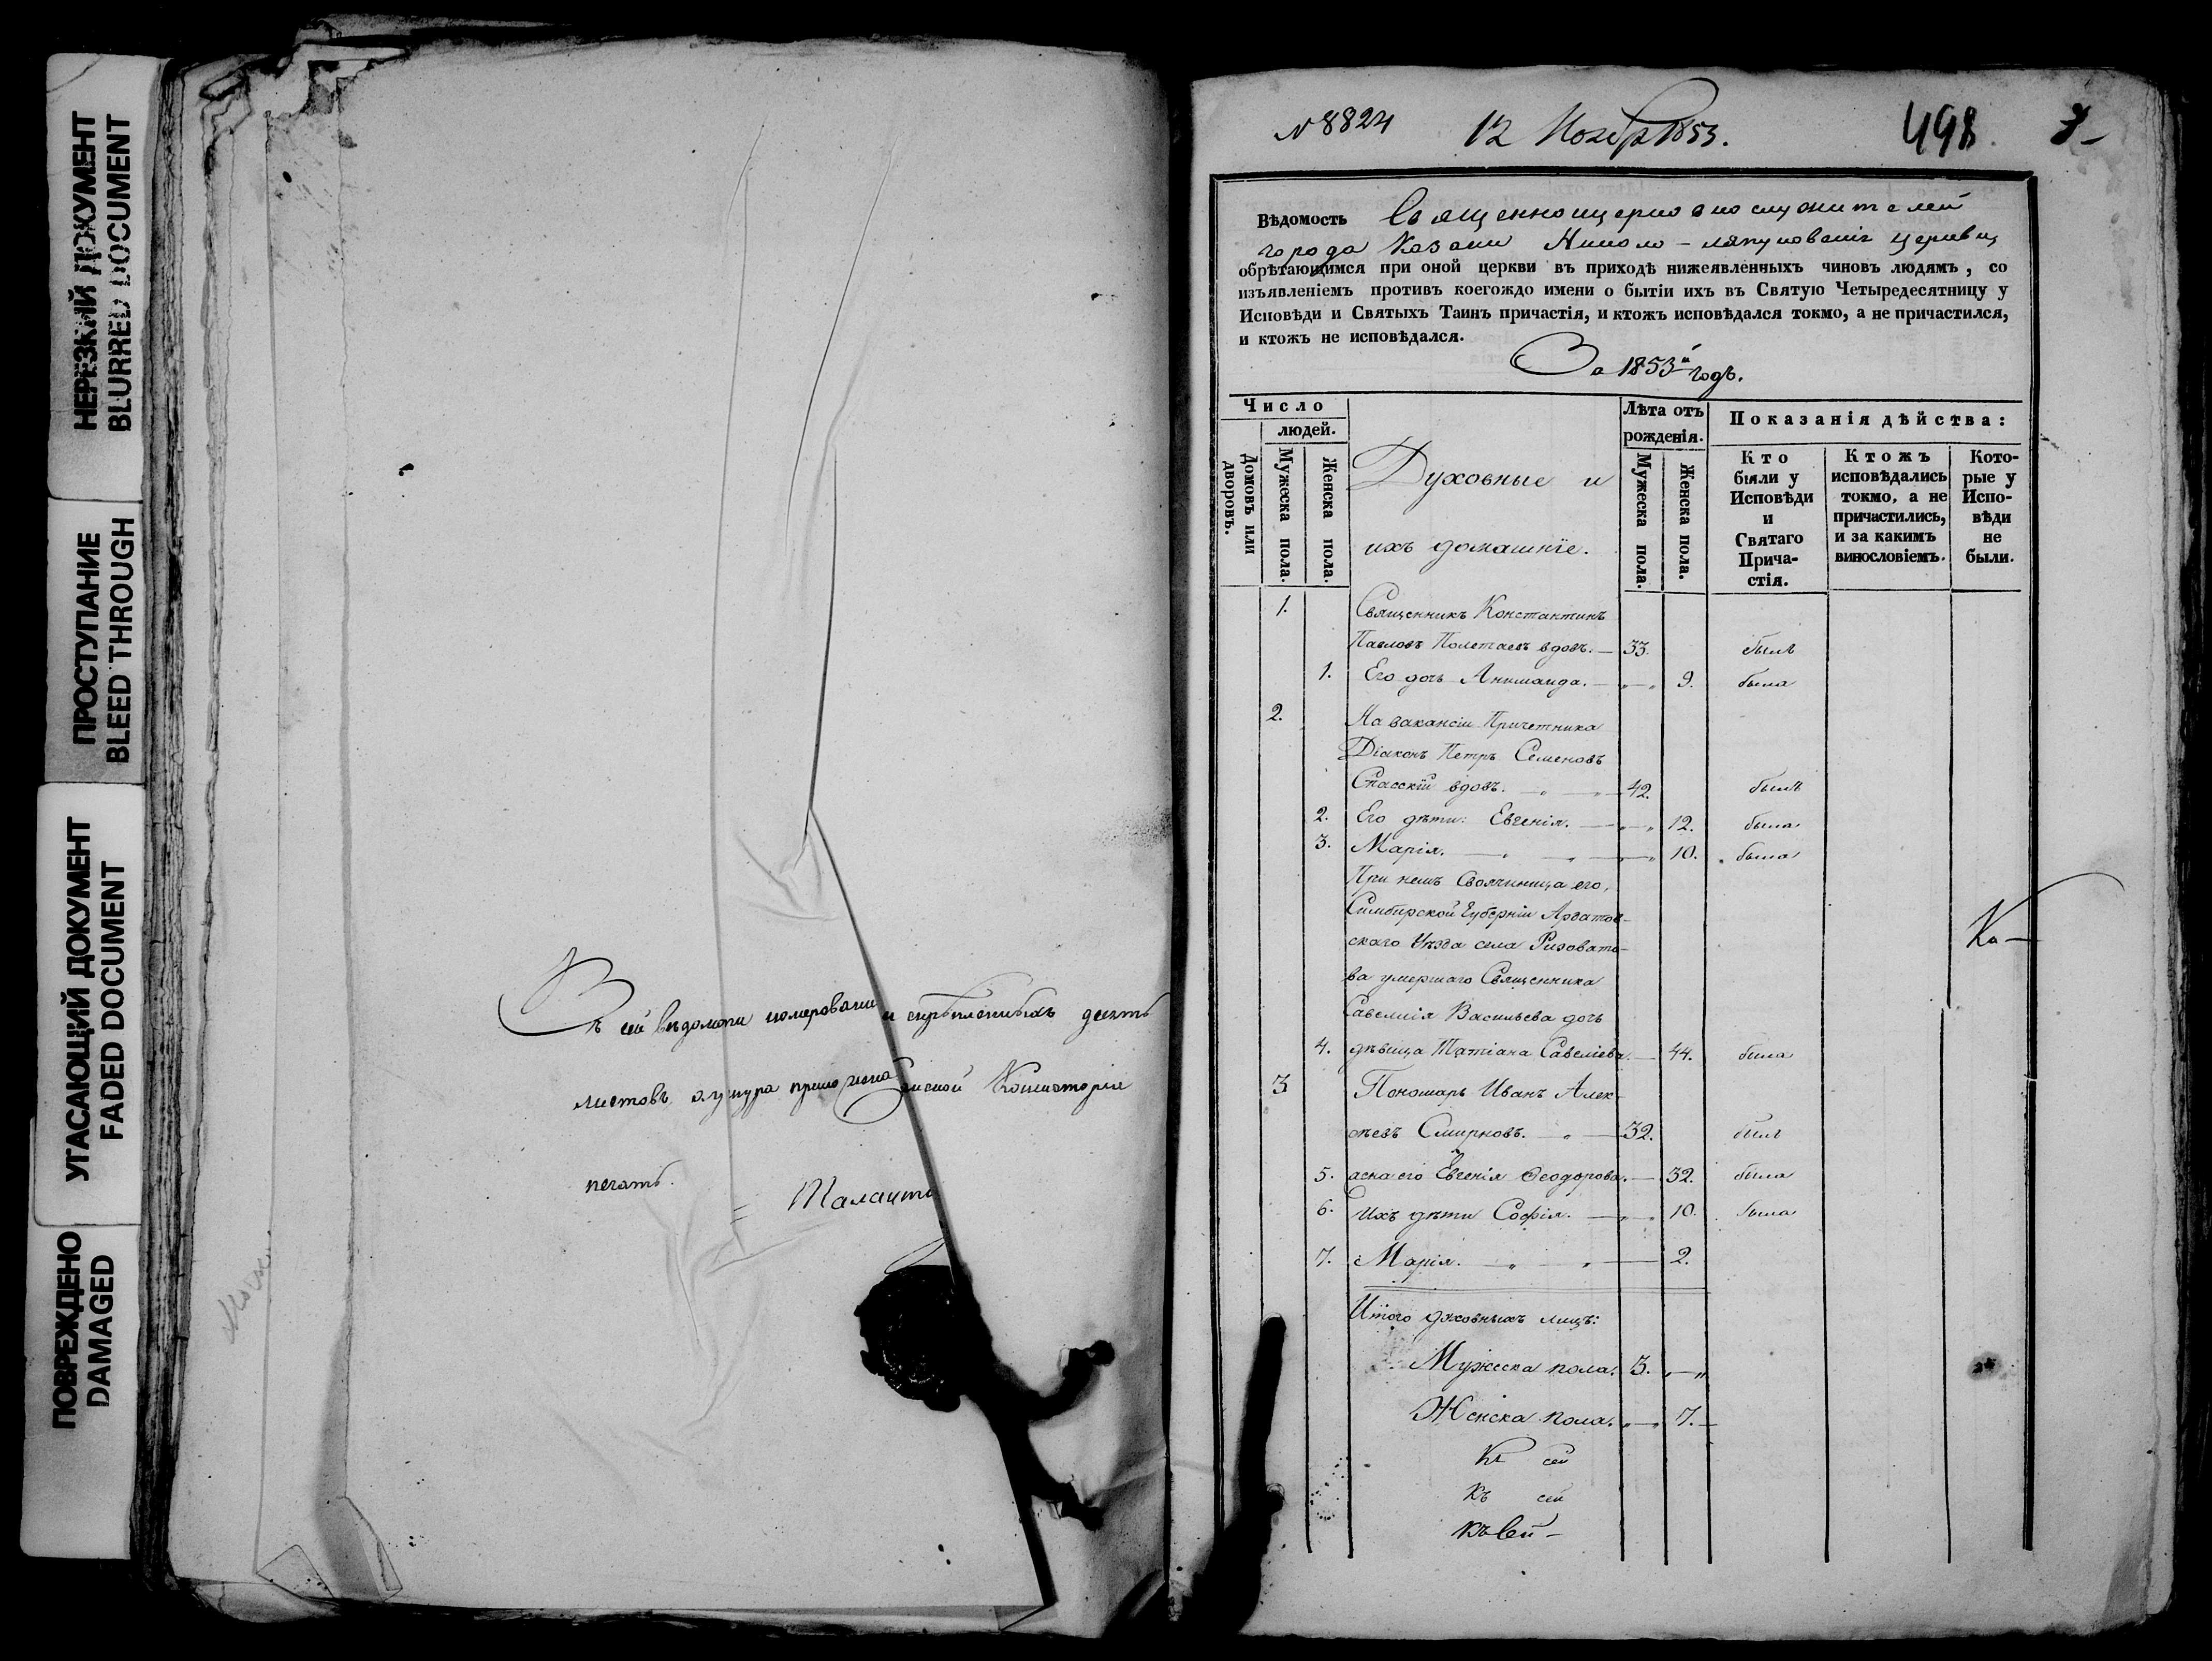 НЕРЕЗКИЙ ДОКУМЕНТ
BLURRED DOCUMENT
ПРОСТУПАНИЕ
BLEED THROUGH
УГАСАЮЩИЙ ДОКУМЕНТ
FADED DOCUMENT
ПОВРЕЖДЕНО
DAMAGED
Въ сей ведомости номерованныхъ и скрѣпленныхъ десять
листовъ
Консисторіи
печать.
№ 8824 12 Ноябр 1853. 498
Вѣдомость Священноцерковнослужителей
города Казани Николо-ляпуновскія церкви
обрѣтающимся при оной церкви въ приходѣ нижеявленныхъ чиновъ людямъ, со
изъявленіемъ противъ коегождо имени о бытіи ихъ въ Святую Четыредесятницу у
Исповѣди и Святыхъ Таинъ причастія, и ктожъ исповѣдался токмо, а не причастился,
и ктожъ не исповѣдался.
За 1853й годъ.
Число
людей.
Домовъ или дворовъ.
Мужеска пола.
Женска пола.
Духовные и
ихъ домашніе.
Лѣта отъ
рожденія.
Мужеска пола.
Женска пола.
Показанія дѣйства:
Кто
были у
Исповѣди
и
Святаго
Прича-
стія.
Ктожъ
исповѣдались
токмо, а не
причастились,
и за какимъ
винословіемъ.
Кото-
рые у
Испо-
вѣди
не
были.
1. Священникъ Константинъ
Павловъ Полетаевъ вдовъ. — 33. былъ
1. Его дочь — 9. была
2. На вакансіи Причетника
Діаконъ Петръ Семеновъ
Спасскій вдовъ. — 42. былъ
2. Его дѣти: Евгенія. — 12. была
3. Марія. — 10. была
При немъ Свояченица его,
Симбирской Губерніи Ардатов-
скаго Уѣзда села Ризовато-
ва умершаго Священника
Ка—
Савелія Васильева дочь
4. дѣвица Татіана Савеліева. — 44. была
3 Пономарь Иванъ Алек-
сѣевъ Смирновъ. — 32. былъ
5. жена его Евгенія Ѳеодорова. — 32. была
6. Ихъ дѣти Софія. — 10. была
7. Марія. — 2.
Итого духовныхъ лицъ:
Мужеска пола. 3.
Женска пола. 7.
Къ сей
Къ сей
Къ Сей-